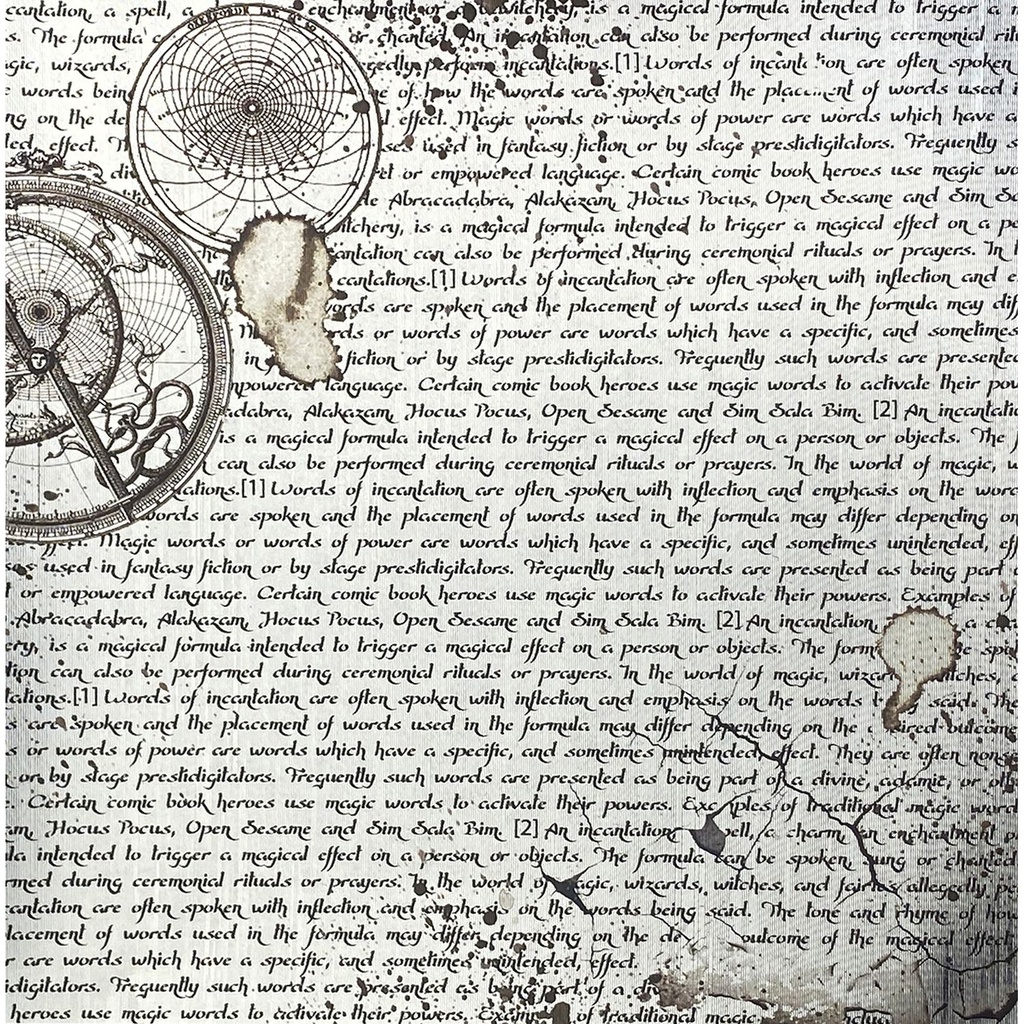 cantation, a spell, a enchantment or a bewitchery, is a magical formula intended to trigger a
s. The formula c or chanted. An incantation can also be performed during ceremonial rit
gic, wizards, egedly perform incantations.[1] Words of incant ion are often spoken
e words bein e of how the words are spoken and the placement of words used i
ng on the de effect. Magic words or words of power are words which have a
ded effect. Th ses used in fantasy fiction or by stage prestidigitators. Frequently s
div et or empowered language. Certain comic book heroes use magic wo
de Abracadabra, Alakazam, Hocus Pocus, Open Sesame and Sim Sa
witchery, is a magical formula intended to trigger a magical effect on a pe
cha antation can also be performed during ceremonial rituals or prayers. In t
cantations.[1] Words of incantation are often spoken with inflection and e
ords are spoken and the placement of words used in the formula may dif
M rds or words of power are words which have a specific, and sometimes
in fiction or by stage prestidigitators. Frequently such words are presented
mpowered language. Certain comic book heroes use magic words to activate their pow
adabra, Alakazam, Hocus Pocus, Open Sesame and Sim Sala Bim. [2] An incantatio
is a magical formula intended to trigger a magical effect on a person or objects. The f
can also be performed during ceremonial rituals or prayers. In the world of magic, w
tations.[1] Words of incantation are often spoken with inflection and emphasis on the word
words are spoken and the placement of words used in the formula may differ depending on
effect. Magic words or words of power are words which have a specific, and sometimes unintended, eff
ses used in fantasy fiction or by stage prestidigitators. Frequently such words are presented as being part o
t or empowered language. Certain comic book heroes use magic words to activate their powers. Examples of
Abracadabra, Alakazam, Hocus Pocus, Open Sesame and Sim Sala Bim. [2] An incantation, a cha
ery, is a magical formula intended to trigger a magical effect on a person or objects. The form be spo
tion can also be performed during ceremonial rituals or prayers. In the world of magic, wizar witches, a
tations.[1] Words of incantation are often spoken with inflection and emphasis on the words said. The
s are spoken and the placement of words used in the formula may differ depending on the sired outcome
s or words of power are words which have a specific, and sometimes unintended, effect. They are often nons
or by stage prestidigitators. Frequently such words are presented as being part of a divine, adamic, or oth
e. Certain comic book heroes use magic words to activate their powers. Examples of traditional magic word
am, Hocus Pocus, Open Sesame and Sim Sala Bim. [2] An incantation, spell, a charm, an enchantment o
la intended to trigger a magical effect on a person or objects. The formula can be spoken, sung or chanted
rmed during ceremonial rituals or prayers. In the world of magic, wizards, witches, and fairies allegedly pe
cantation are often spoken with inflection and emphasis on the words being said. The tone and rhyme of how
lacement of words used in the formula may differ depending on the de outcome of the magical effect
r are words which have a specific, and sometimes unintended, effect.
idigitators. Frequently such words are presented as being part of a div
heroes use magic words to activate their powers. Exam of traditional magic